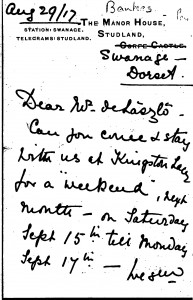 Aug 29/17
Bankers -
THE MANOR HOUSE,
STATION: SWANAGE.
STUDLAND,
TELEGRAMS: STUDLAND.
CORFE CASTLE.
Swanage -
Dorset.
Dear Mr. de László -
Can you come & stay
with us at Kingston Lacy
for a "weekend", next
month - on Saturday
Sept 15th till Monday
Sept 17th -